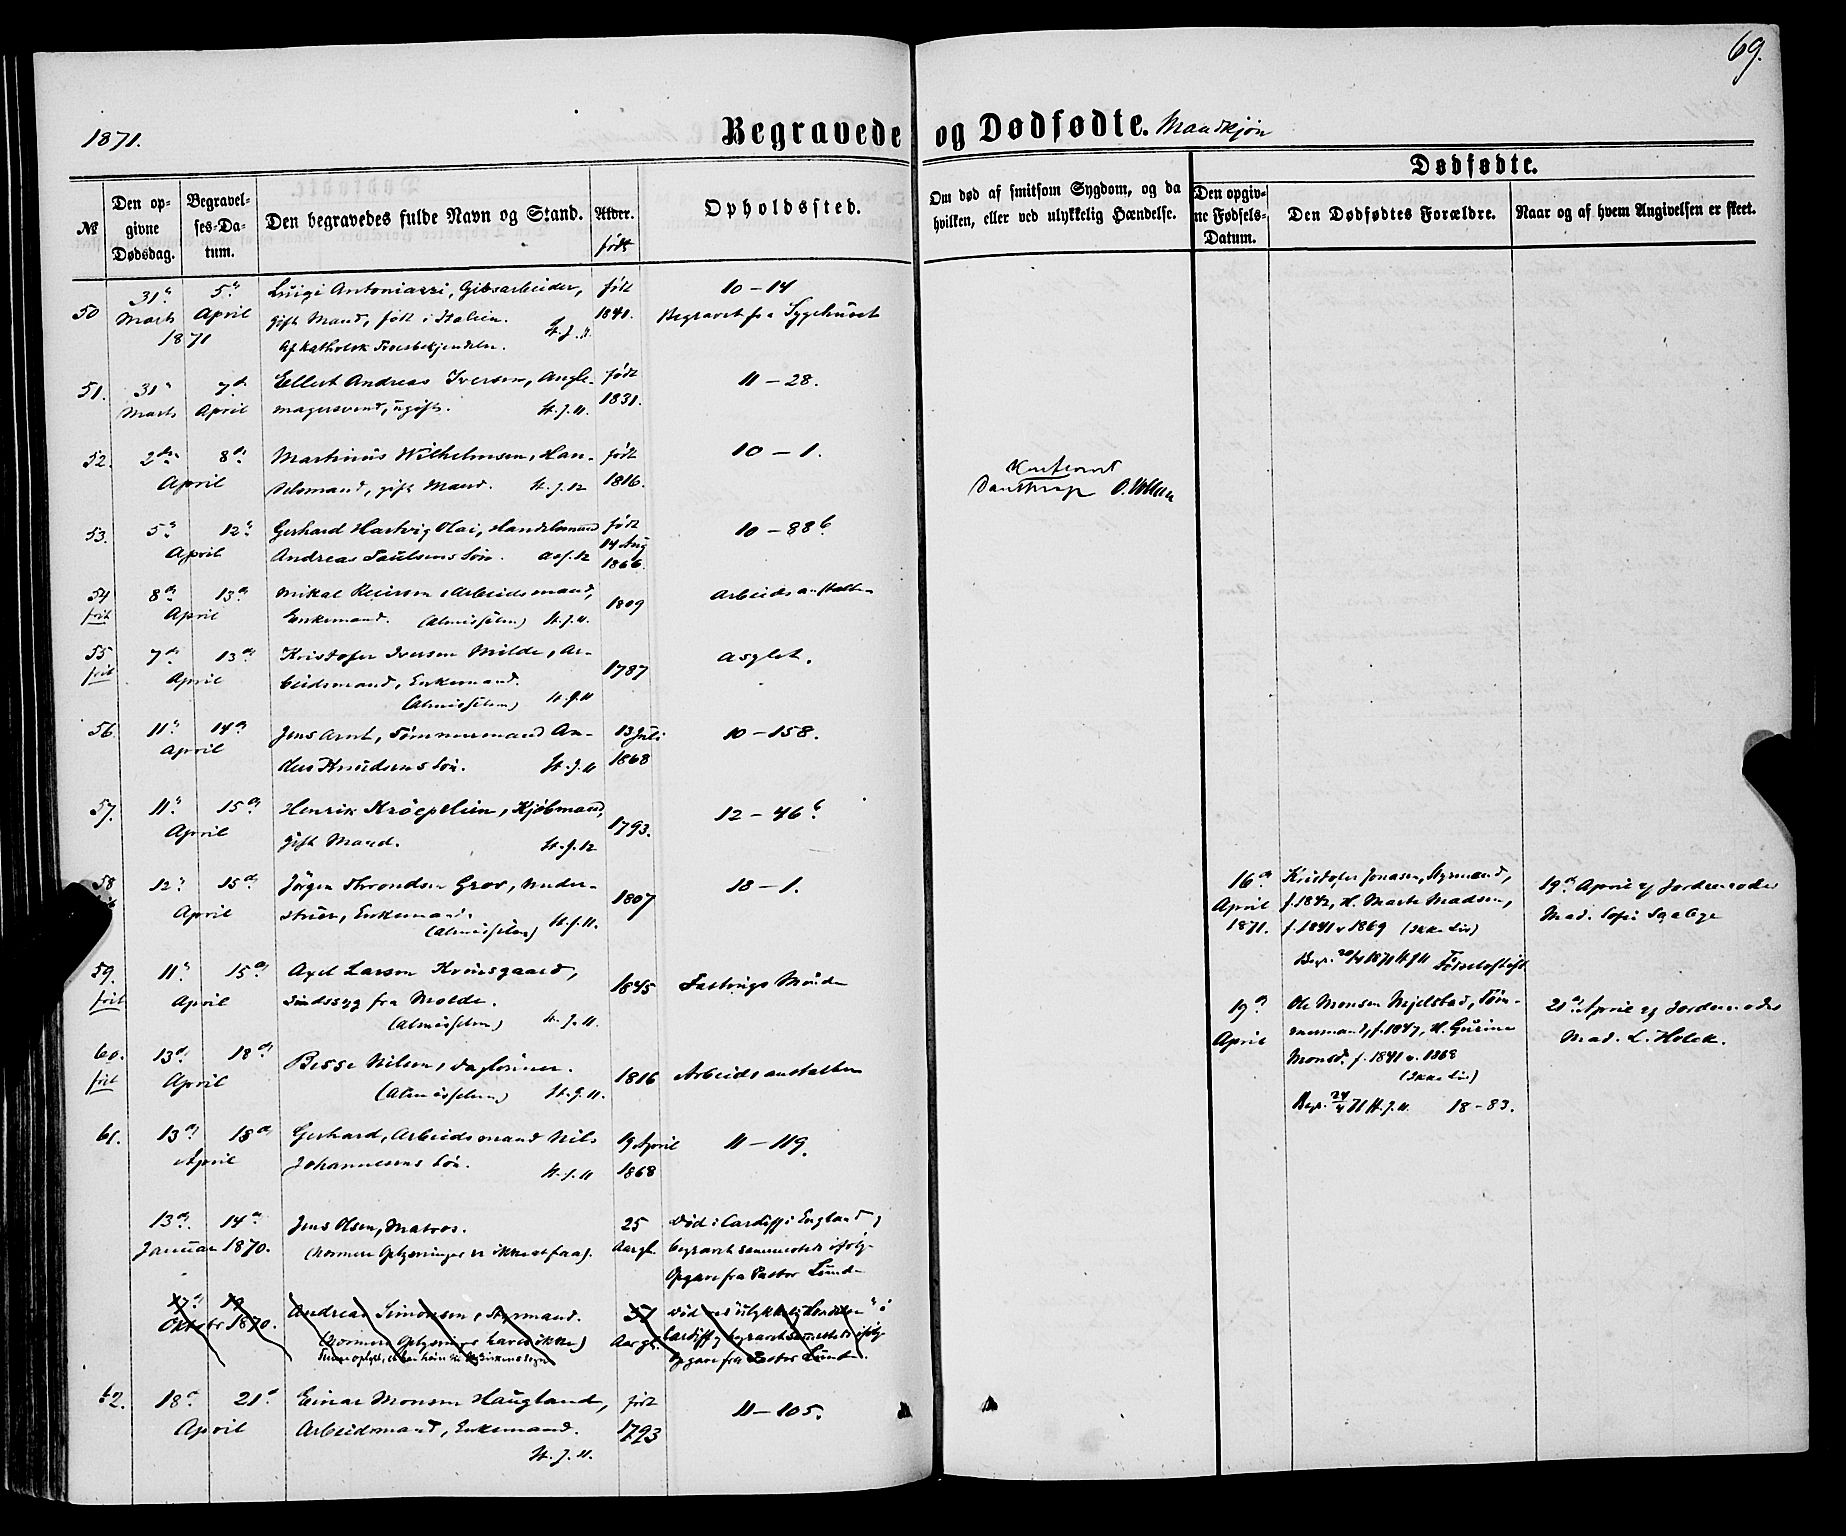 69.
1871.
Begravede og Dødfødte. Mandkjøn
Dødfødte.
№
Den opgivne Dødsdag.
Begravelses-Datum.
Den begravedes fulde Navn og Stand.
Alder. født
Opholdssted.
Om død af smitsom Sygdom, og da hvilken, eller ved ulykkelig Hændelse.
Den opgivne Fødsels-Datum.
Den Dødfødtes Forældre.
Naar og af hvem Angivelsen er skeet.
50 31te Marts 5te April 1871 Luigi Antoniazzi, Gibsarbeider, født 1841. 10 – 14
gift Mand, født i Italien. St. J. 11. Begravet fra Sygehuset
Af katholsk Troesbekjendelse.
51. 31te Marts 7de April Ellert Andreas Iversen, født 1831. 11 – 28.
magersvend, ugift. St. J. 11.
52. 2den 8de April Martinus Wilhelmsen, Han- født 1816. 10 – 1.
delsmand, gift Mand. St. J. 12
53. 5te 12te April Gerhard Hartvig Olai, Handelsmand født 14 Aug 1866. 10 – 88b
Andreas Paulsens Søn. Ass. 12
54 frit 8de 13de April Mikal Reiersen, Arbeidsmand, 1809 Arbeidsanstalten
Enkemand. (Almisselem) St. J. 11.
55 frit 7de 13de April Kristofer Iversen Milde, Ar- 1787 Asylet.
beidsmand, Enkemand.
(Almisselem) St. J. 11
56. 11te 14de April Jens Arnt, Tømmermand An- 13 Juli 1868 10 – 158.
ders Knudsens Søn. St. J. 11
57. 11te 15de April Henrik Krøepelien, Kjøbmand, 1793. 12 – 46b
gift Mand. St. J. 12
58 12te 15de April Jørgen Throndsen Grov, Under- 1807 18 – 1.
Enkemand.
(Almisselem) St. J. 11.
59. frit 11te 15de April Axel Larsen 1845
Sindssyg fra Molde.
(Almisselem) St. J. 11.
60. frit 13de 18de April Besse Nilsen, Dagløner. 1816 Arbeidsanstalten
(Almisselem) St. J. 11.
61. 13de 18de April Gerhard, Arbeidsmand Nils 19 April 1868 11 – 119.
Johannesens Søn. St. J. 11
13de 14de Januar 1870. Jens Olsen, Matros. 25 Aar gl. Død i Cardiff i England,
(Nærmere Oplysninger er ikke at faa). begravet sammesteds ifølge
Opgave fra Pastor Lund
17de 19 Oktober 1870. Andreas Simonsen, Styrmand. 51 Aar gl. Død ved "ulykkelig Hændelse" i
(Nærmere Oplysninger haves ikke) Cardiff og begravet sammesteds ifølge
Opgave fra Pastor Lund.
62. 18de 21de April Einar Monsen Haugland, født 1793 11 – 105.
Arbeidsmand, Enkemand.
St. J. 11.
Konfereret
O. Wollan
16de April 1871. Kristofer Jonasen, Styrmand,
f. 1842, H. Marta Madsen,
f. 1841 v. 1869 (Ikke Liv)
Begr. 20/4 1871 St J 11 Fødselsstift
19de April af Jordemoder
Mad. Sofie
19de April Ole Monsen Mjelstad, Tøm-
mermand, f. 1847, H. Gurine
Monsd. f. 1841 v. 1868
(Ikke Liv)
Begr. 24/4 71 St. J. 11. 18 – 83.
21de April af Jordemoder
Mad. L. Holck.